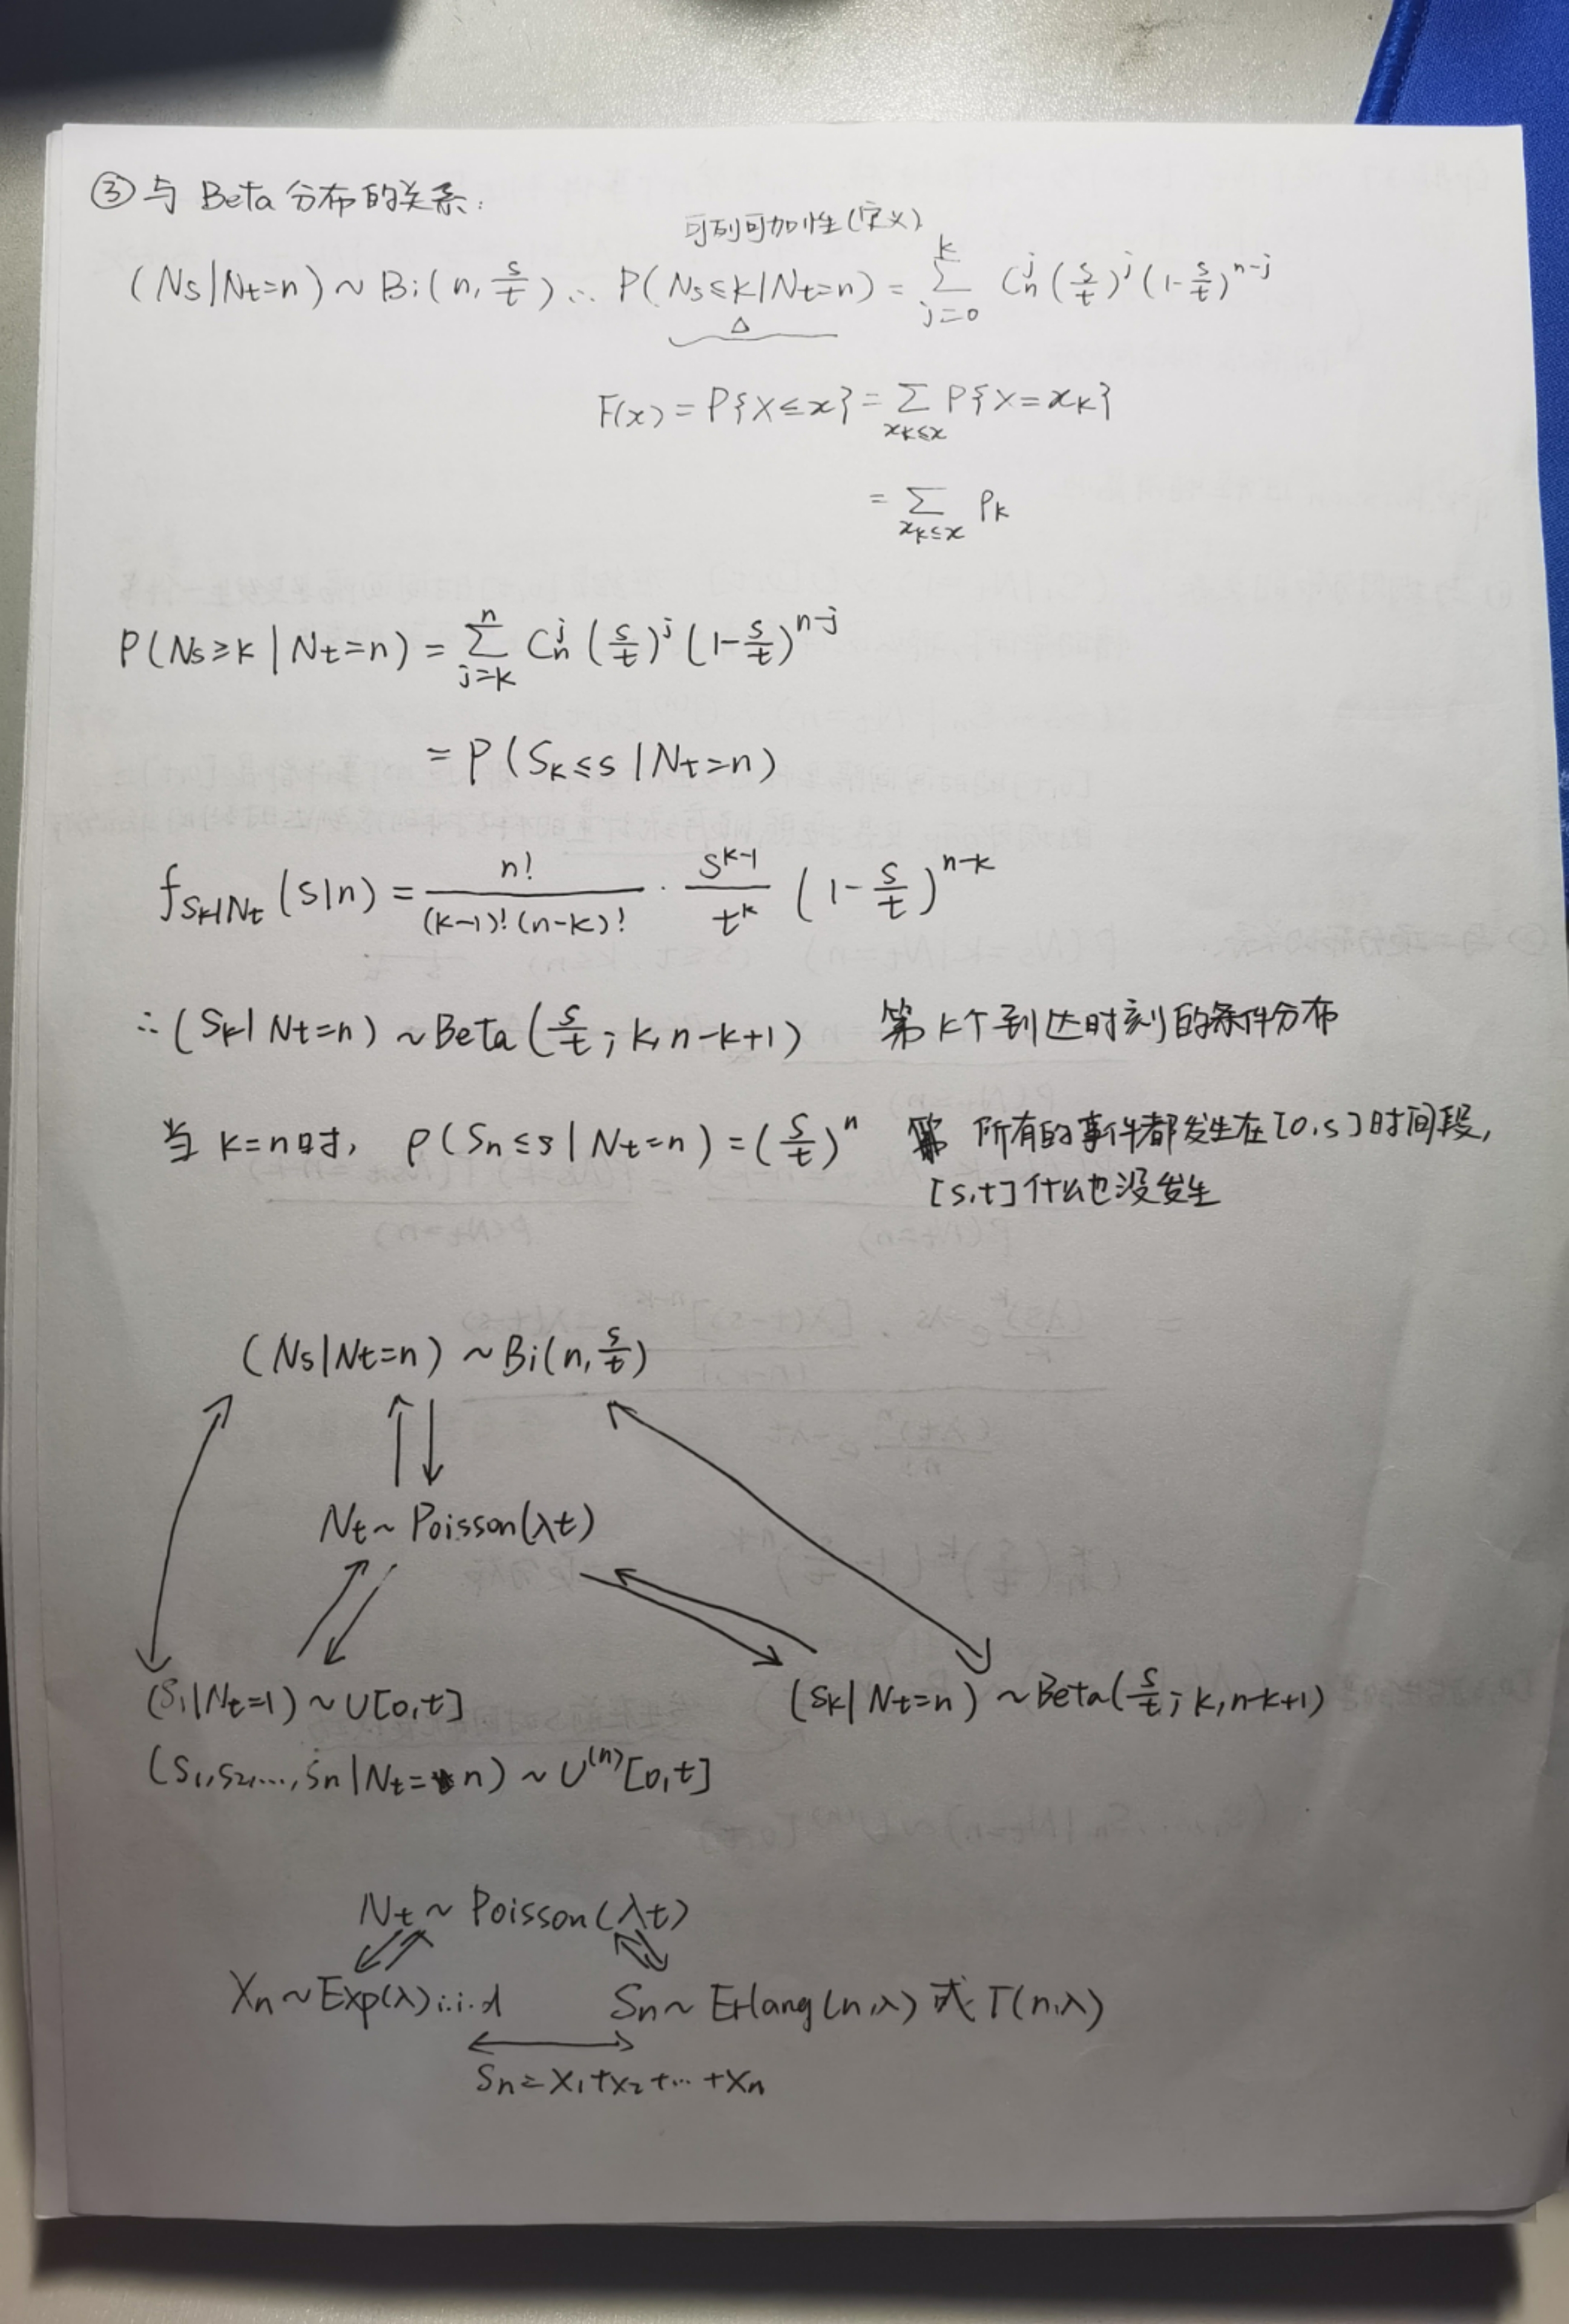 ③与 Beta 分布的关系:
可列可加性(定义)
(Ns|Nt=n) ~ Bi(n, s/t) ∴ P(Ns≤k|Nt=n) = ∑_{j=0}^{k} C_n^j (s/t)^j (1-s/t)^{n-j}
△
F(x) = P{X≤x} = ∑_{xk≤x} P{X=xk}
= ∑_{xk≤x} Pk
P(Ns≥k | Nt=n) = ∑_{j=k}^{n} C_n^j (s/t)^j (1-s/t)^{n-j}
= P(Sk≤s | Nt=n)
f_{Sk|Nt}(s|n) = n!/((k-1)!(n-k)!) · s^{k-1}/t^k (1-s/t)^{n-k}
∴ (Sk| Nt=n) ~ Beta(s/t; k, n-k+1) 第k个到达时刻的条件分布
当 k=n时, P(Sn≤s | Nt=n) = (s/t)^n 所有的事件都发生在[0,s]时间段,
[s,t]什么也没发生
(Ns|Nt=n) ~ Bi(n, s/t)
Nt ~ Poisson(λt)
(S1|Nt=1) ~ U[0,t] (Sk| Nt=n) ~ Beta(s/t; k, n-k+1)
(S1,S2,…,Sn|Nt=n) ~ U^{(n)}[0,t]
Nt ~ Poisson(λt)
Xn ~ Exp(λ) i.i.d Sn ~ Erlang(n,λ) 或 Γ(n,λ)
Sn = X1+X2+…+Xn